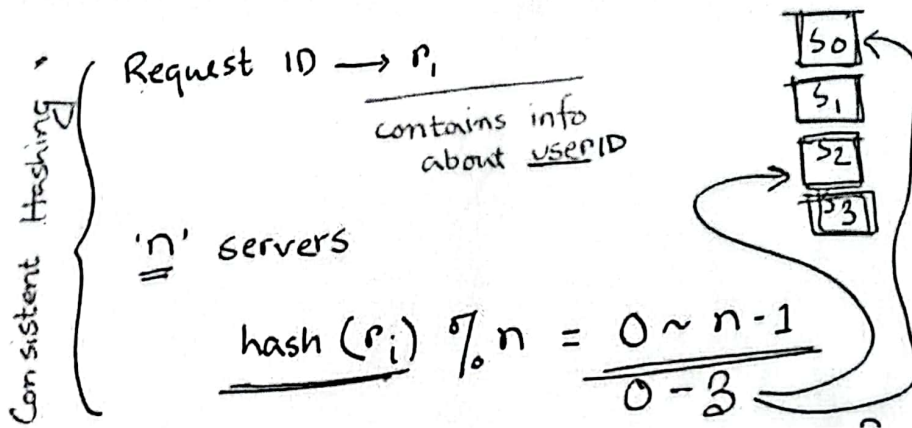 Consistent Hashing
Request ID → r1
contains info
about userID
'n' servers
hash (ri) % n = 0 ~ n-1
0 - 3
S0
S1
S2
S3